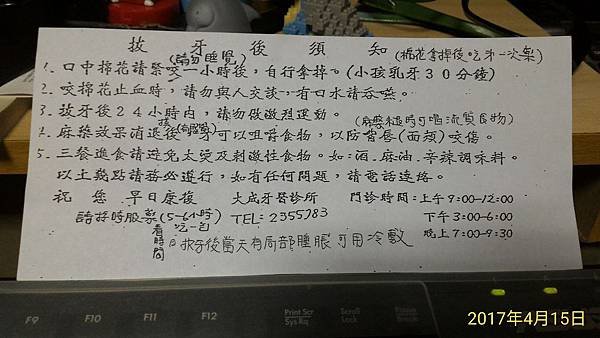 拔牙後須知
(請勿睡覺)
(棉花拿掉後吃第一次藥)
1. 口中棉花請緊咬一小時後，自行拿掉。(小孩乳牙30分鐘)
2. 咬棉花止血時，請勿與人交談，有口水請吞嚥。
3. 拔牙後24小時內，請勿做激烈運動。
(麻藥褪時可喝流質食物)
4. 麻藥效果消退後，才可以咀嚼食物，以防唇(面頰)咬傷。
5. 三餐進食請避免太燙及刺激性食物。如:酒.麻油.辛辣調味料。
以上幾點請務必遵行，如有任何問題，請電話連絡。
祝您早日康復 大成牙醫診所 門診時間:上午9:00-12:00
請按時服藥(5-6小時吃一包) TEL:2355783 下午3:00-6:00
看時間 晚上7:00-9:30
拔牙後當天有局部腫脹可用冷敷
F9 F10 F11 F12 Print Scr Sys Rq Scroll Lock Pause Break
2017年4月15日